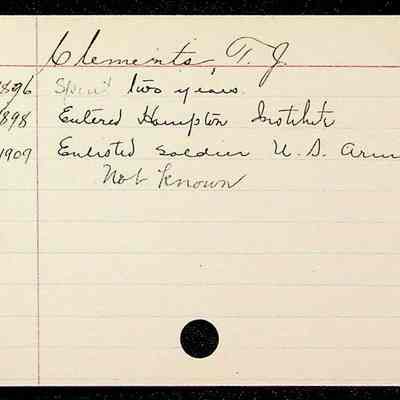 Clements, T. J.
1896 Spent two years.
1898 Entered Hampton Institute
1909 Enlisted soldier U. S. Arm
Not known